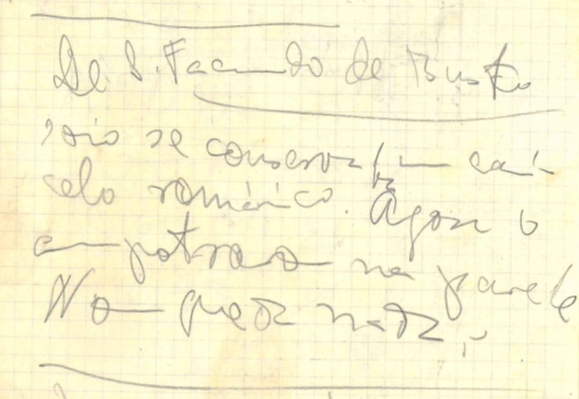 De S. Facundo de Busto
solo se conserva un can-
celo románico. Agora o
empotraron na parede
Non queda nada.